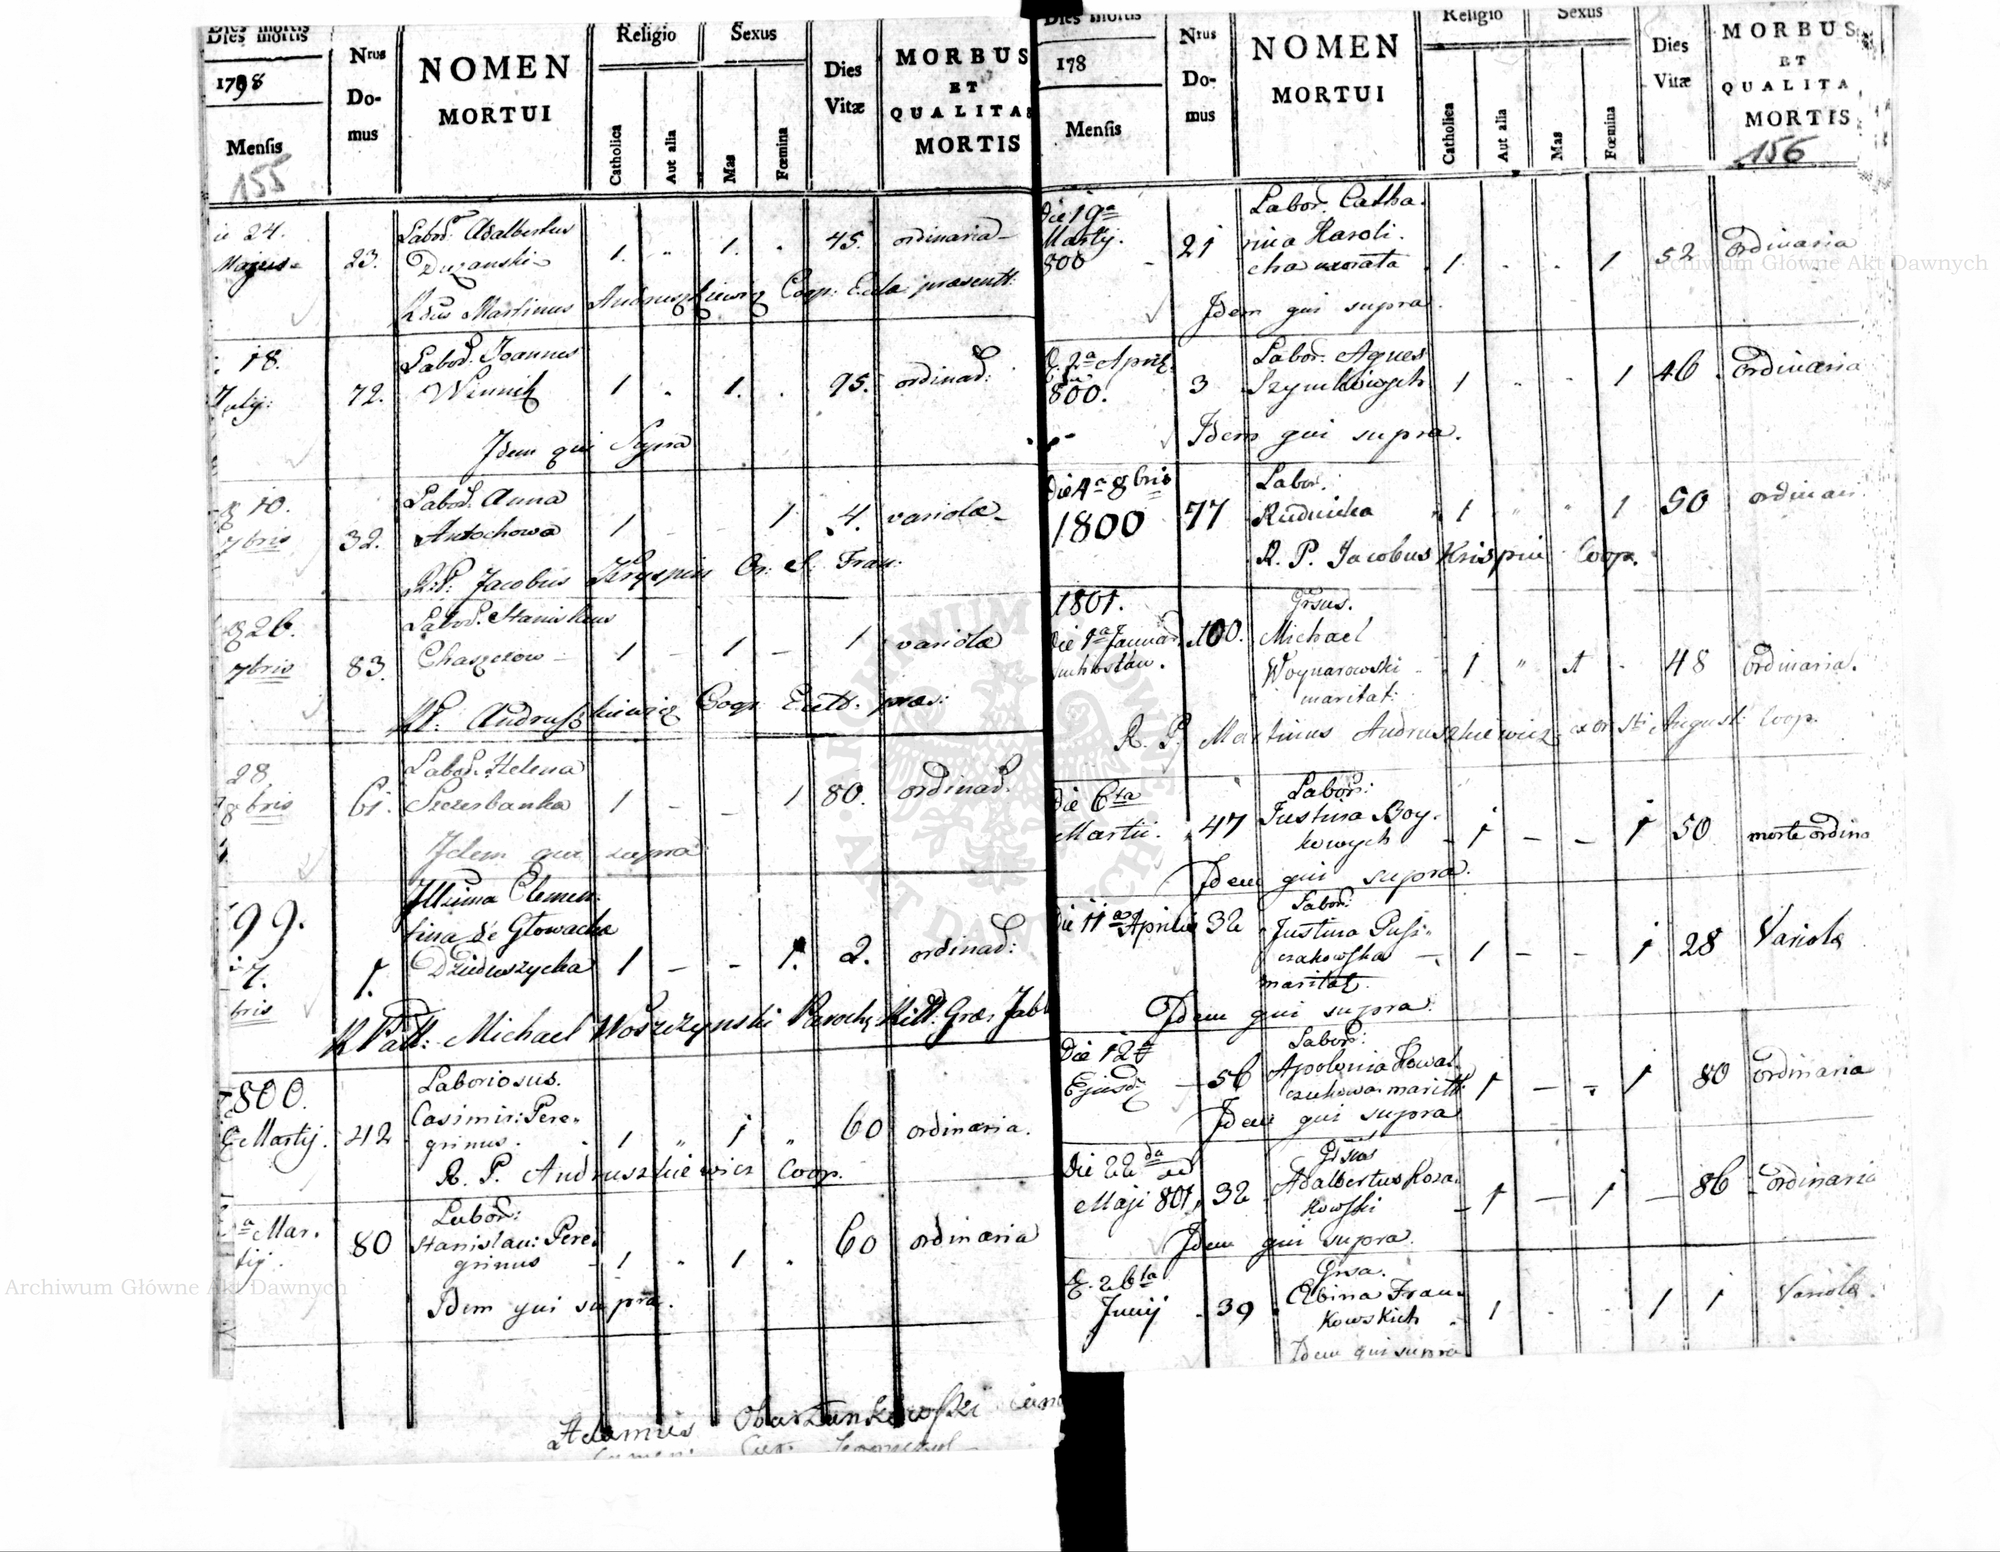 Dies mortis
1798
Mensis
155
Nrus
Do-
mus
NOMEN
MORTUI
Religio
Catholica
Aut alia
Sexus
Mas
Fœmina
Dies
Vitæ
MORBUS
ET
QUALITAS
MORTIS
24.
Majus
23.
Labor. Adalbertus
1. " 1. "
45.
ordinaria
Martinus Andruszkiewicz Coop: Eccla præsentt:
18.
July:
72.
Labor. Joannes
Winnik
1 . 1. .
95.
ordinar:
Idem qui Supra
10.
7bris
32.
Labor. Anna
Antochowa
1 - - 1
4.
variolæ
R: P: Jacobus Kryspin Or: S. Fran:
26.
7bris
83.
Labor. Stanislaus
1 - 1 -
1
variolæ
RP. Andruszkiewicz Coop. præs:
28.
8bris
61.
Labor. Helena
Szczerbanka
1 - 1
80.
ordinar.
Idem qui supra
99.
7.
bris
1.
Illsima Clemen-
tina de Głowacka
Dzieduszycka
1 - - 1.
2.
ordinar:
Michael Woszczynski Parochg Ritt. Græ.
800.
Martij.
42
Laboriosus.
Casimir: Pere-
grinus.
1 " 1 "
60
ordinæria.
R. P. Andruszkiewicz Coop.
Mar.
tij.
80
Labor:
Stanislau: Pere-
grinus
1 " 1 "
60
ordinæria
Idem qui supra.
Adamus
Dies mortis
178
Mensis
Nrus
Do-
mus
NOMEN
MORTUI
Religio
Catholica
Aut alia
Sexus
Mas
Fœmina
Dies
Vitæ
MORBUS
ET
QUALITA
MORTIS
156
Die 19a
Martij.
800
21
Labor. Catha-
rina Haroli-
cha uxorata
1 . . 1
52
ordinæria
Idem qui supra.
2a Aprilis
800.
3
Labor. Agnes
Szymkowych
1 " " 1
46
ordinæria
Idem qui supra.
Die 4a 8bris
1800
77
Labor.
Rudnicka
" 1 " " 1
50
ordinari
R. P. Jacobus Krispin Coop.
1801.
Die 1a Januar
100.
Grsus.
Michael
Woynarowski
maritat:
1 " 1 .
48
ordinaria.
R. P. Martinus Andruszkiewicz ex Or. Sti August: Coop.
Die 6ta
Martii.
47
Labor:
Justina Boy-
kowych
1 - - 1
50
morte ordina
Idem qui supra.
Die 11a Aprilis
32
Labor:
Justina
maritat.
1 - - 1
28
Variolæ
Idem qui supra.
Die 12
Ejusd:
56
Labor:
Apolonia Kowal-
czukowa maritt.
1 - - 1
80
ordinaria
Idem qui supra
Die 22da
Maji 801.
32
Grsus
Adalbertus Koza-
kowski
1 - 1 -
86
ordinaria
Idem qui supra.
26ta
Junij
39
Grsa.
Albina Fran-
kowskich
1 . . 1
1
Variolæ.
Idem qui supra
Archiwum Główne Akt Dawnych
Archiwum Główne Akt Dawnych
ARCHIWUM GŁÓWNE AKT DAWNYCH